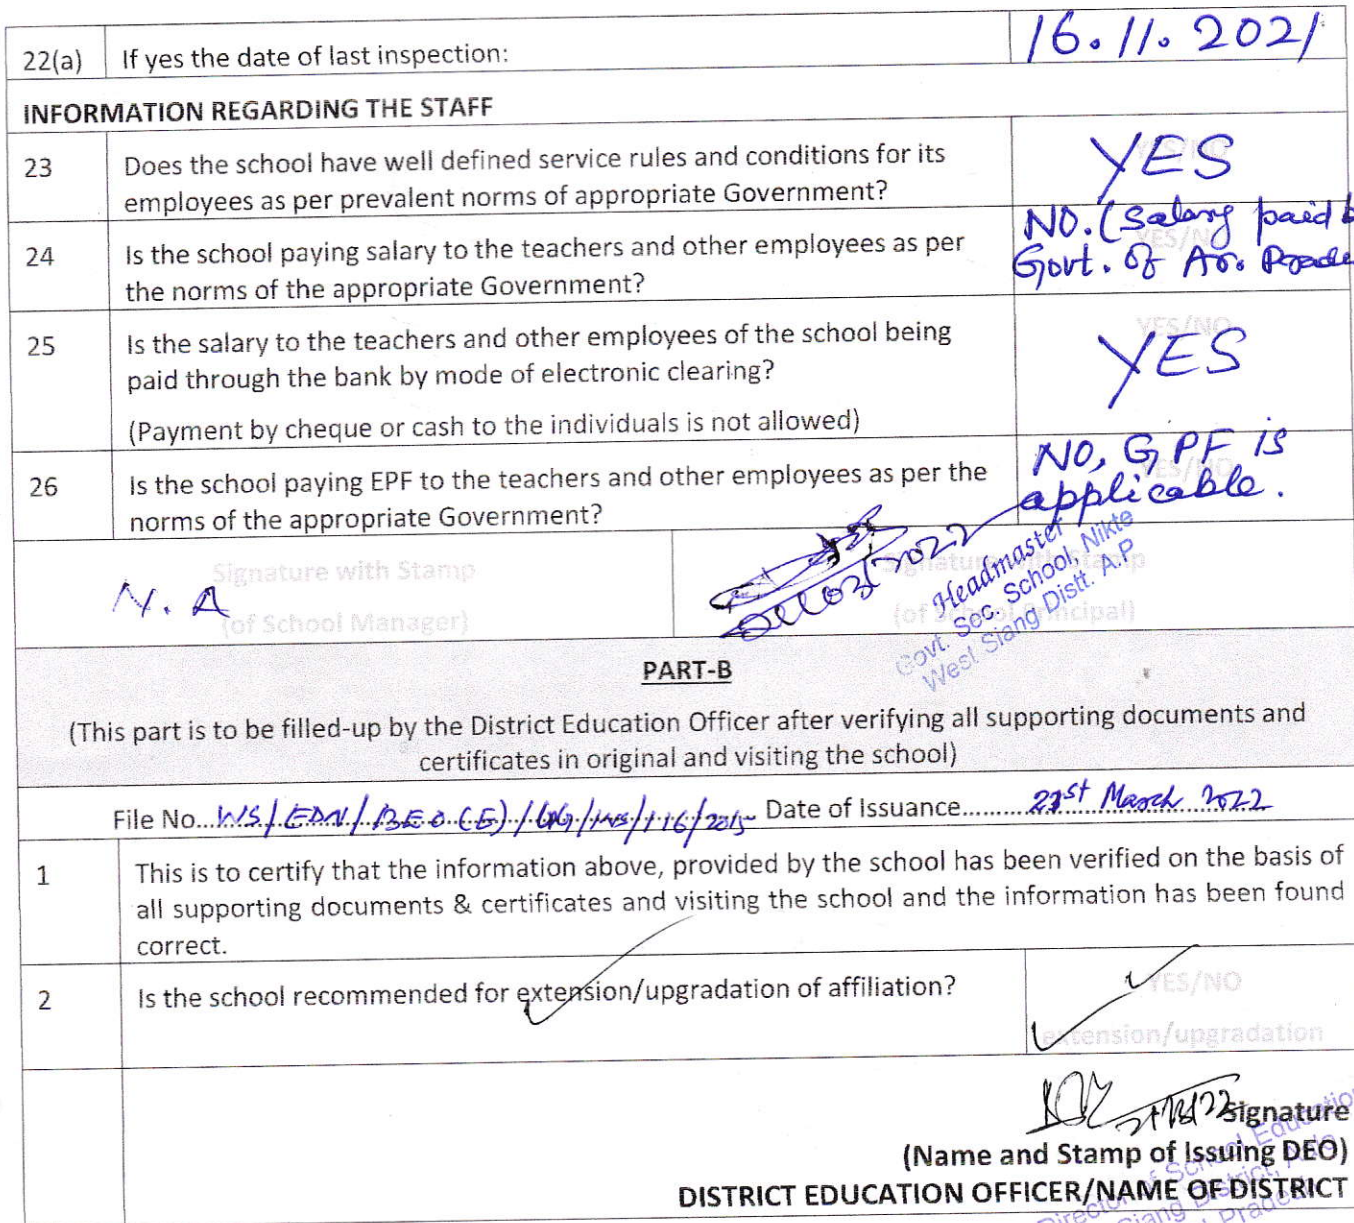 22(a) If yes the date of last inspection: 16.11.2021
INFORMATION REGARDING THE STAFF
23 Does the school have well defined service rules and conditions for its
employees as per prevalent norms of appropriate Government?
YES/NO
YES
24 Is the school paying salary to the teachers and other employees as per
the norms of the appropriate Government?
YES/NO
NO. (Salary paid
Govt. of Ar. Prade
25 Is the salary to the teachers and other employees of the school being
paid through the bank by mode of electronic clearing?
(Payment by cheque or cash to the individuals is not allowed)
YES/NO
YES
26 Is the school paying EPF to the teachers and other employees as per the
norms of the appropriate Government?
YES/NO
NO, GPF is
applicable.
Signature with Stamp
(of School Manager)
N.A
Signature with Stamp
(of School Principal)
Headmaster
Govt. Sec. School, Nikte
West Siang Distt. A.P
PART-B
(This part is to be filled-up by the District Education Officer after verifying all supporting documents and
certificates in original and visiting the school)
File No... WS/EDN/BEO(E)/ /116/2015 Date of Issuance.......... March 2022
1 This is to certify that the information above, provided by the school has been verified on the basis of
all supporting documents & certificates and visiting the school and the information has been found
correct.
2 Is the school recommended for extension/upgradation of affiliation?
YES/NO
extension/upgradation
Signature
(Name and Stamp of Issuing DEO)
DISTRICT EDUCATION OFFICER/NAME OF DISTRICT
Director of School Education
Siang District,